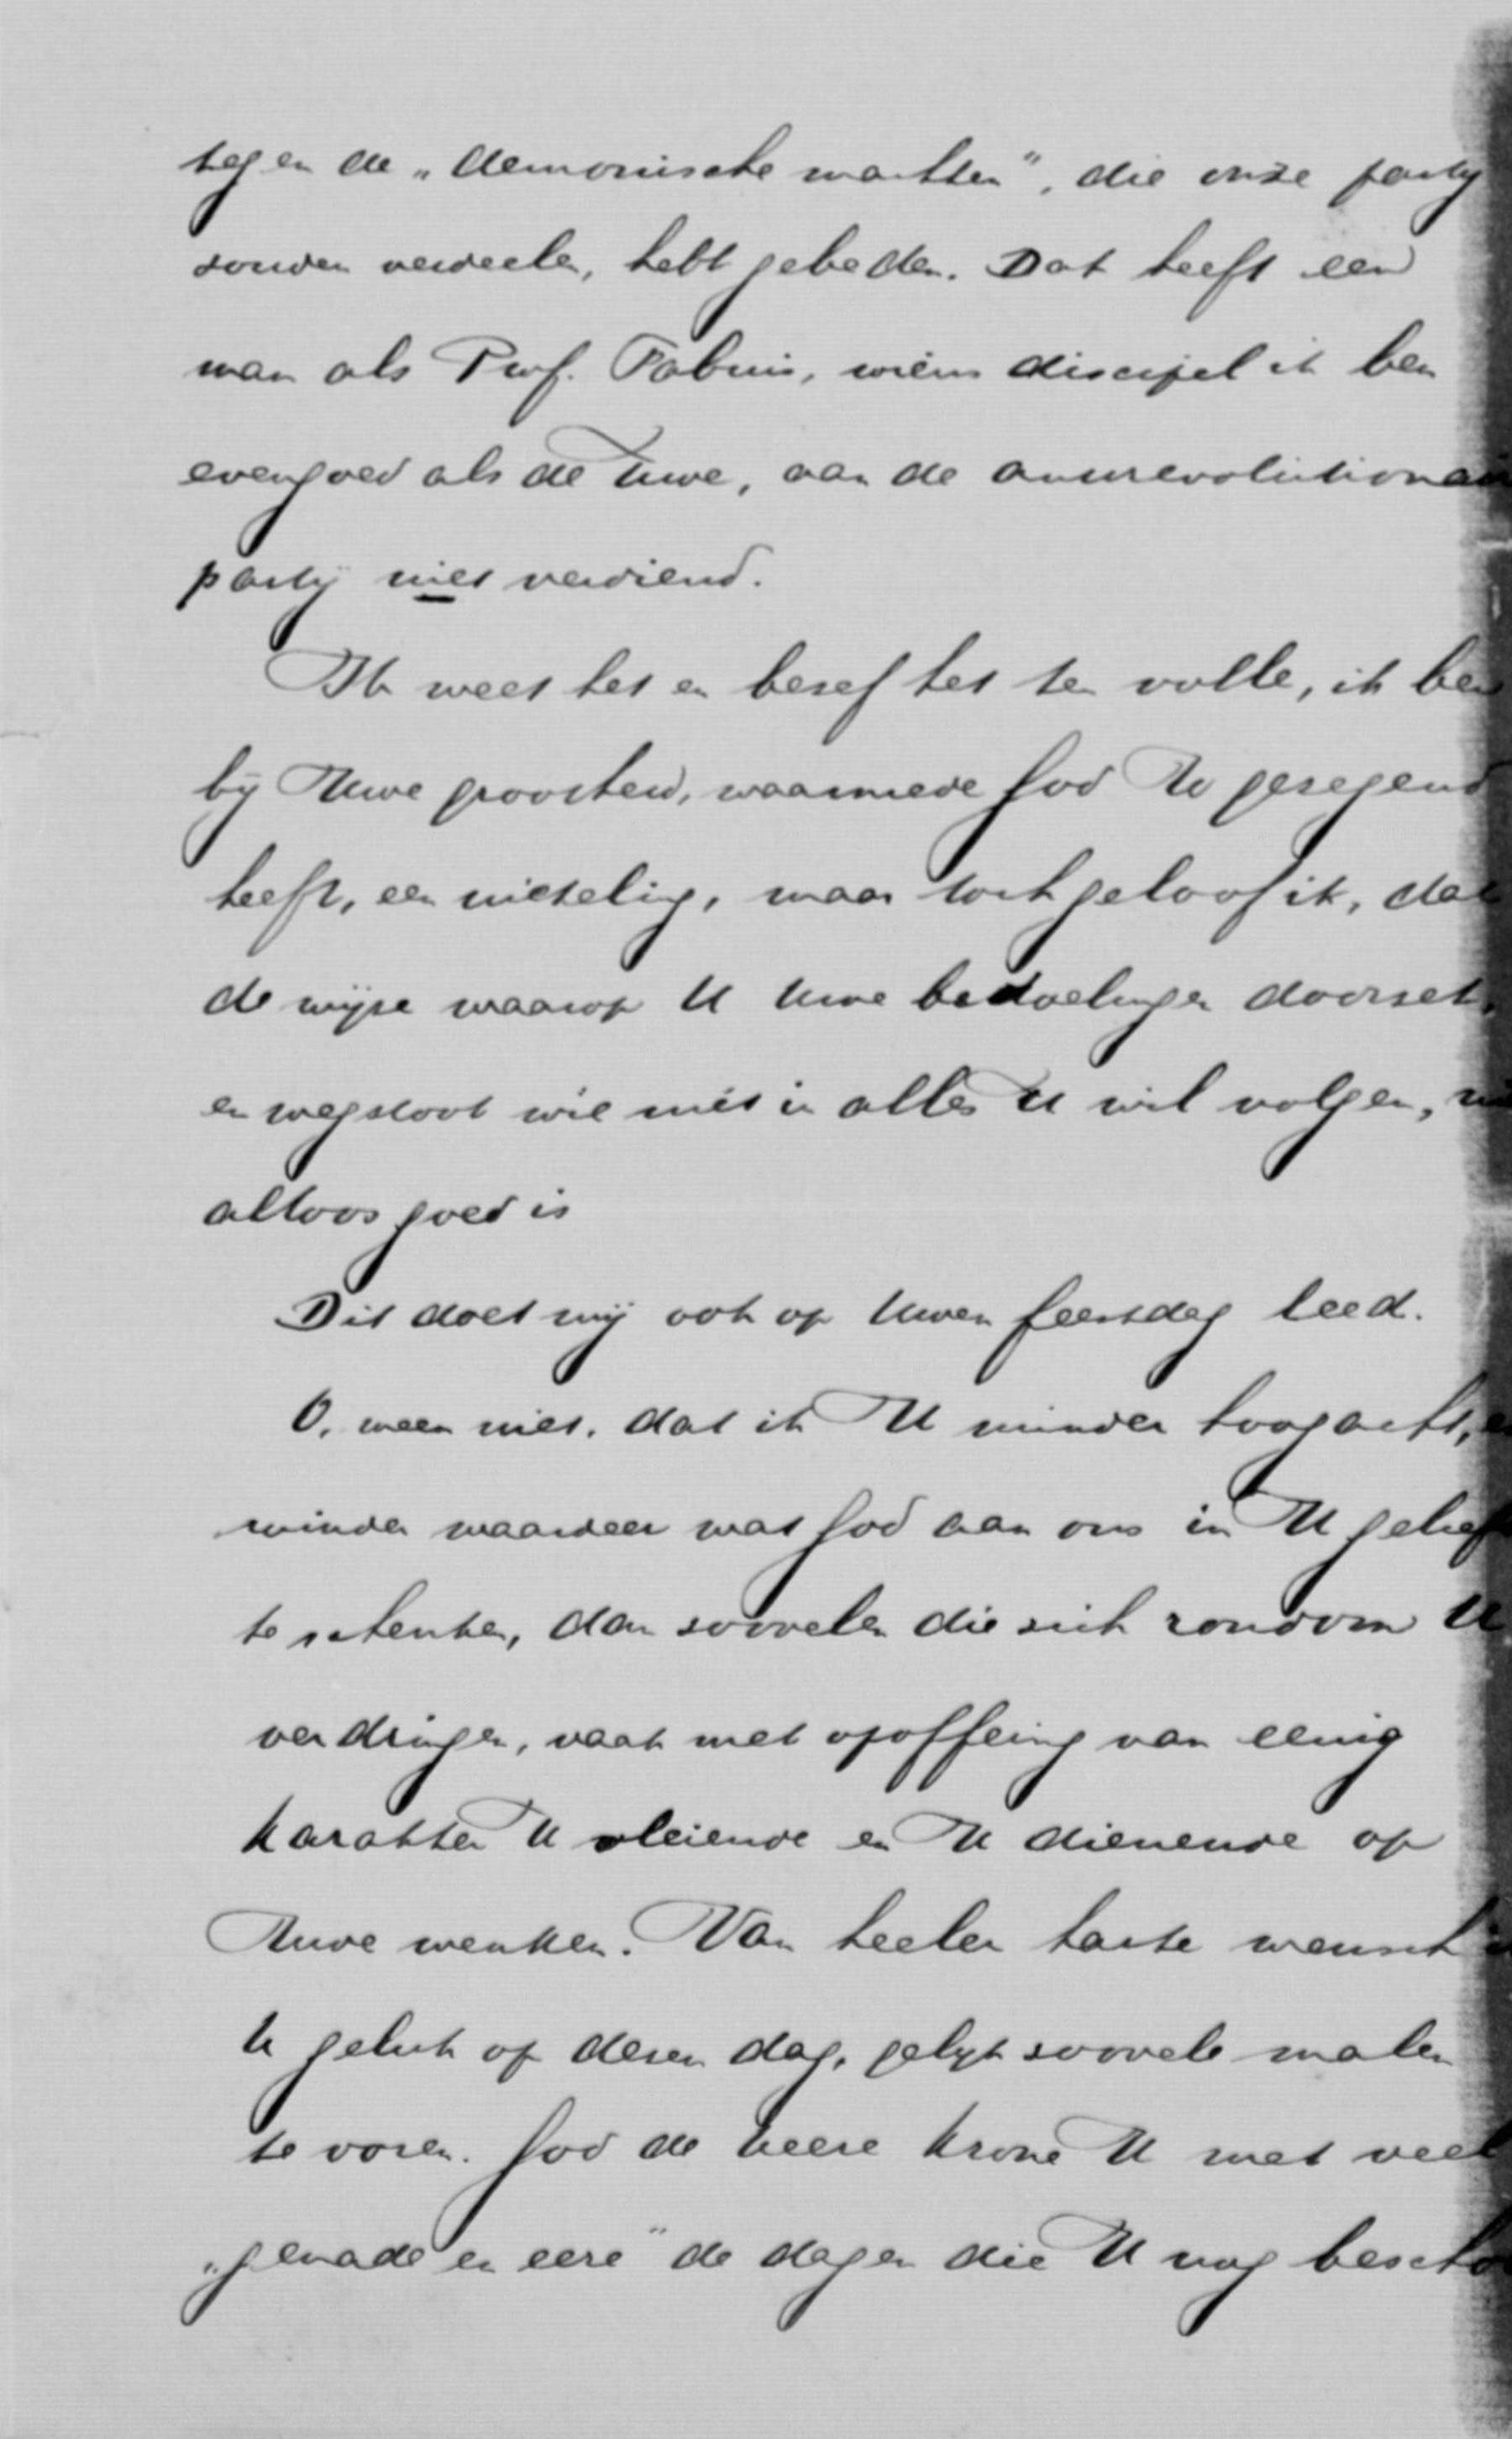 tegen de „demonische machten", die onze partij
zouden verdeelen, hebt gebeden. Dat heeft een
man als Prof. Fabius, wiens discipel ik ben
evengoed als de Uwe, aan de antirevolutionair
partij niet verdiend.
Ik weet het en besef het ten volle, ik ben
bij Uwe grootheid, waarmede God U gezegend
heeft, een nieteling, maar toch geloof ik, dat
de wijze waarop U Uwe bedoelingen doorzet,
en wegstoot wie niet in alles U wil volgen,
altoos goed is
Dit doet mij ook op Uwen feestdag leed.
O, meen niet, dat ik U minder hoogacht,
minder waardeer wat God aan ons in U gelieft
te schenken, dan zoovelen die zich rondom U
verdringen, vaak met opoffering van eenig
karakter U vleiende en U dienende op
Uwe wenken. Van heeler harte wensch
U geluk op dezen dag, gelijk zoovele malen
te voren. God de Heere krone U met veel
„genade en eere" de dagen die U nog